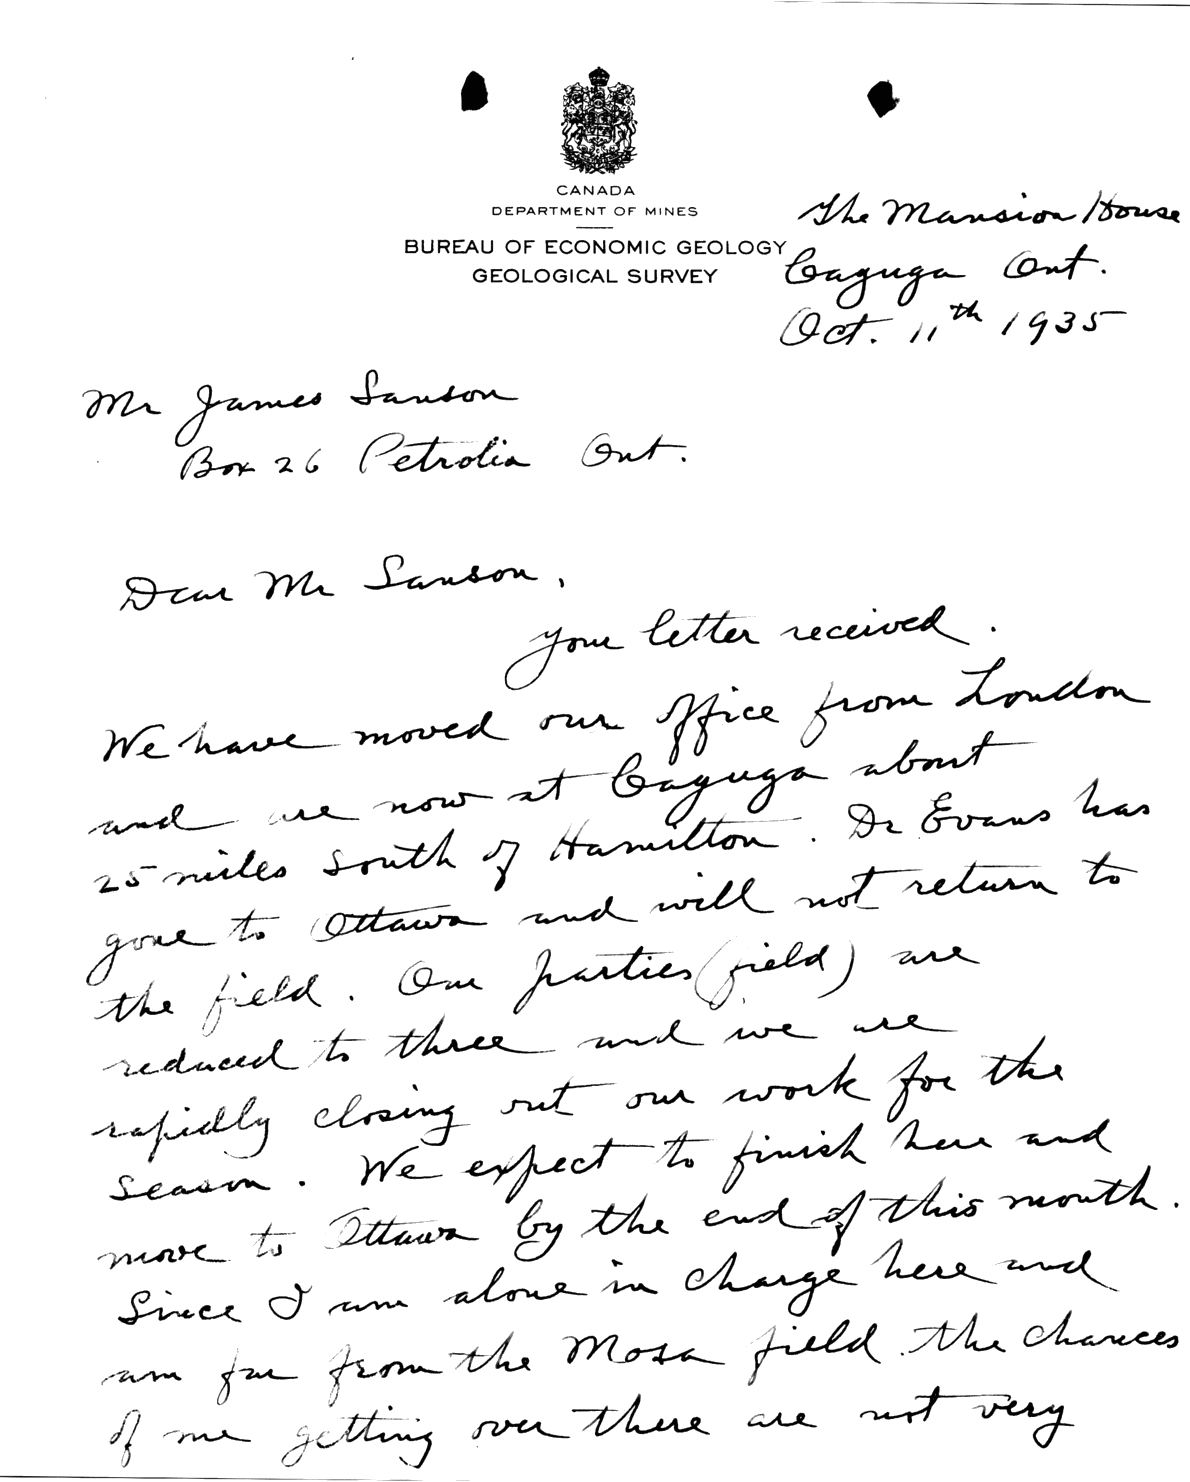 CANADA
DEPARTMENT OF MINES
BUREAU OF ECONOMIC GEOLOGY
GEOLOGICAL SURVEY
The Mansion House
Cayuga Ont.
Oct. 11th 1935
Mr James Sanson
Box 26 Petrolia Ont.
Dear Mr Sanson,
Your letter received.
We have moved our office from London
and are now at Cayuga about
25 miles south of Hamilton. Dr Evans has
gone to Ottawa and will not return to
the field. Our parties (field) are
reduced to three and we are
rapidly closing out our work for the
season. We expect to finish here and
move to Ottawa by the end of this month.
Since I am alone in charge here and
am far from the Mosa field the chances
of me getting over there are not very